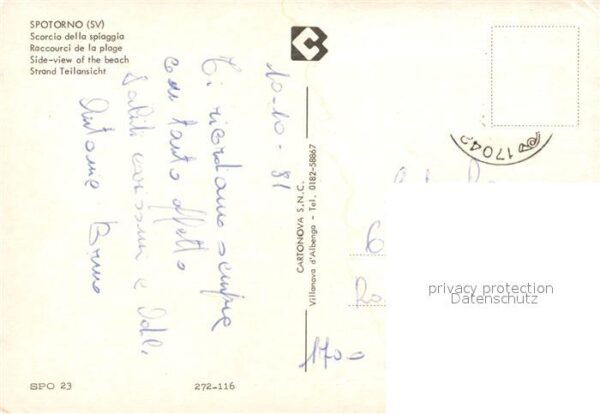 SPOTORNO (SV)
Scorcio della spiaggia
Raccourci de la plage
Side-view of the beach
Strand Teilansicht
10-10-81
Ti ricordiamo sempre
con tanto affetto
Saluti carissimi e
Bruno
CARTONOVA S.N.C.
Villanova d'Albenga - Tel. 0182-58867
17042
privacy protection
Datenschutz
1700-
SPO 23
272-116